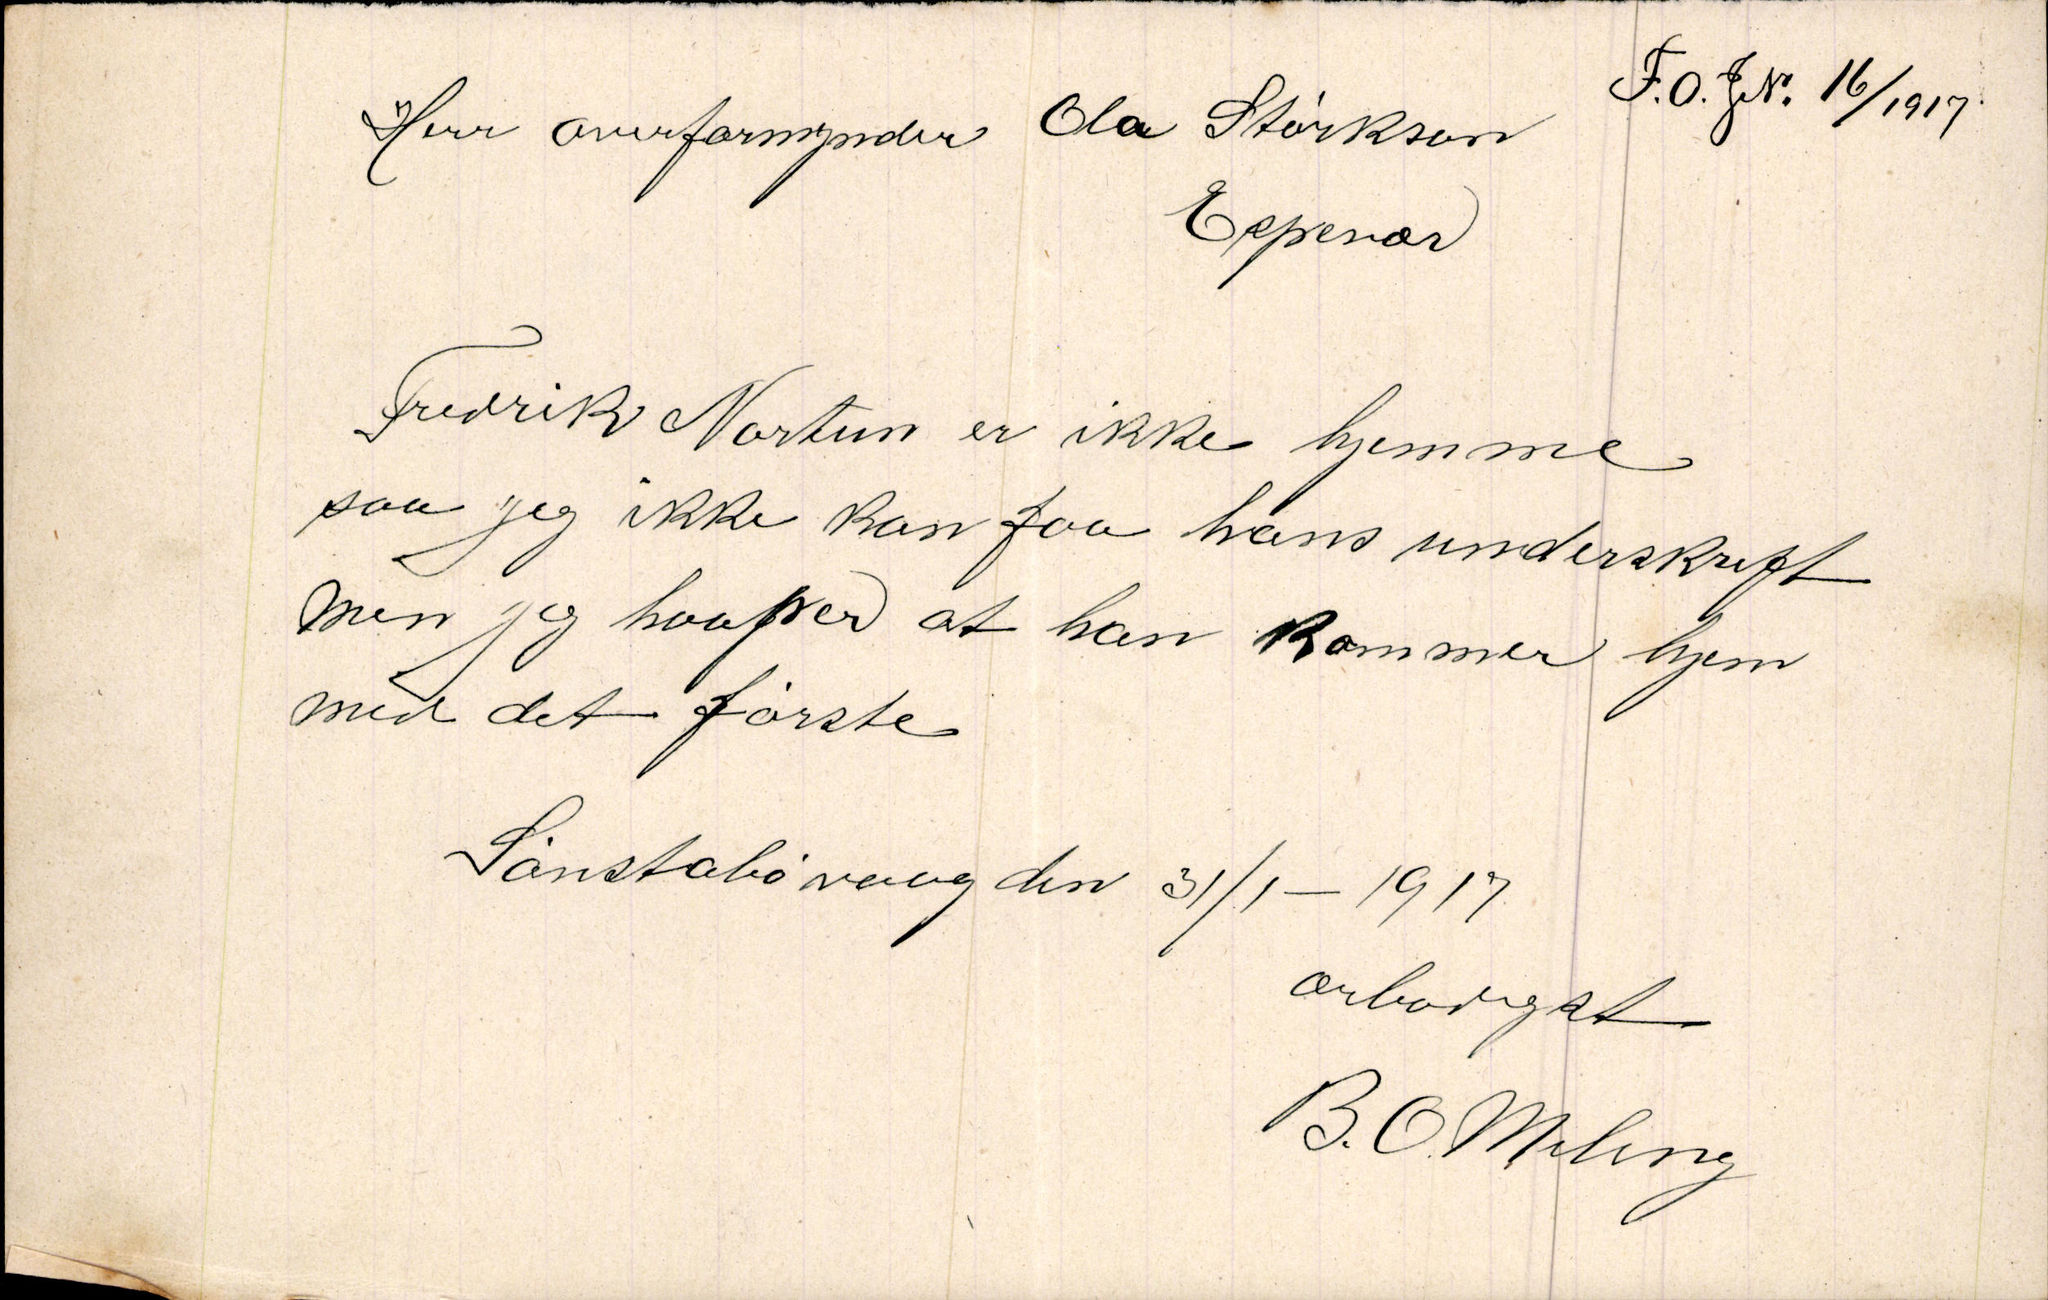 F.O. J.No. 16/1917.
Herr overformynder Ola Störkson
Espevær
Fredrik Nortun er ikke hjemme
saa jeg ikke kan faa hans underskrift
men jeg haaper at han kommer hjem
med det förste
Sönstabövaag den 31/1 – 1917
ærbødigst
B. O. Meling